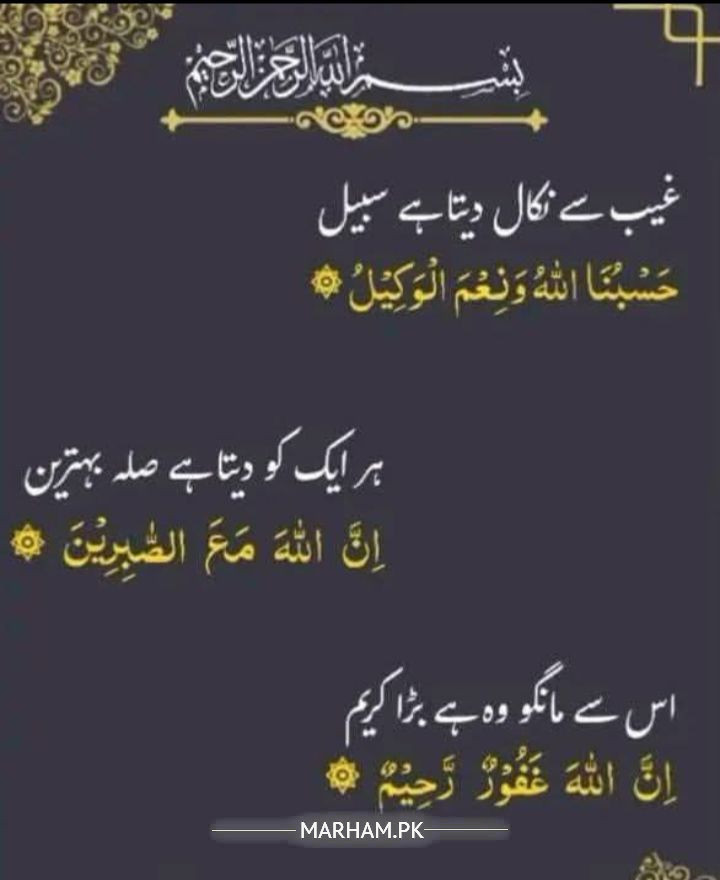 بِسْمِ اللهِ الرَّحْمٰنِ الرَّحِيْمِ
غیب سے نکال دیتا ہے سبیل
حَسْبُنَا اللهُ وَنِعْمَ الْوَكِيْلُ ۞
ہر ایک کو دیتا ہے صلہ بہترین
اِنَّ اللهَ مَعَ الصّٰبِرِيْنَ ۞
اس سے مانگو وہ ہے بڑا کریم
اِنَّ اللهَ غَفُوْرٌ رَّحِيْمٌ ۞
MARHAM.PK